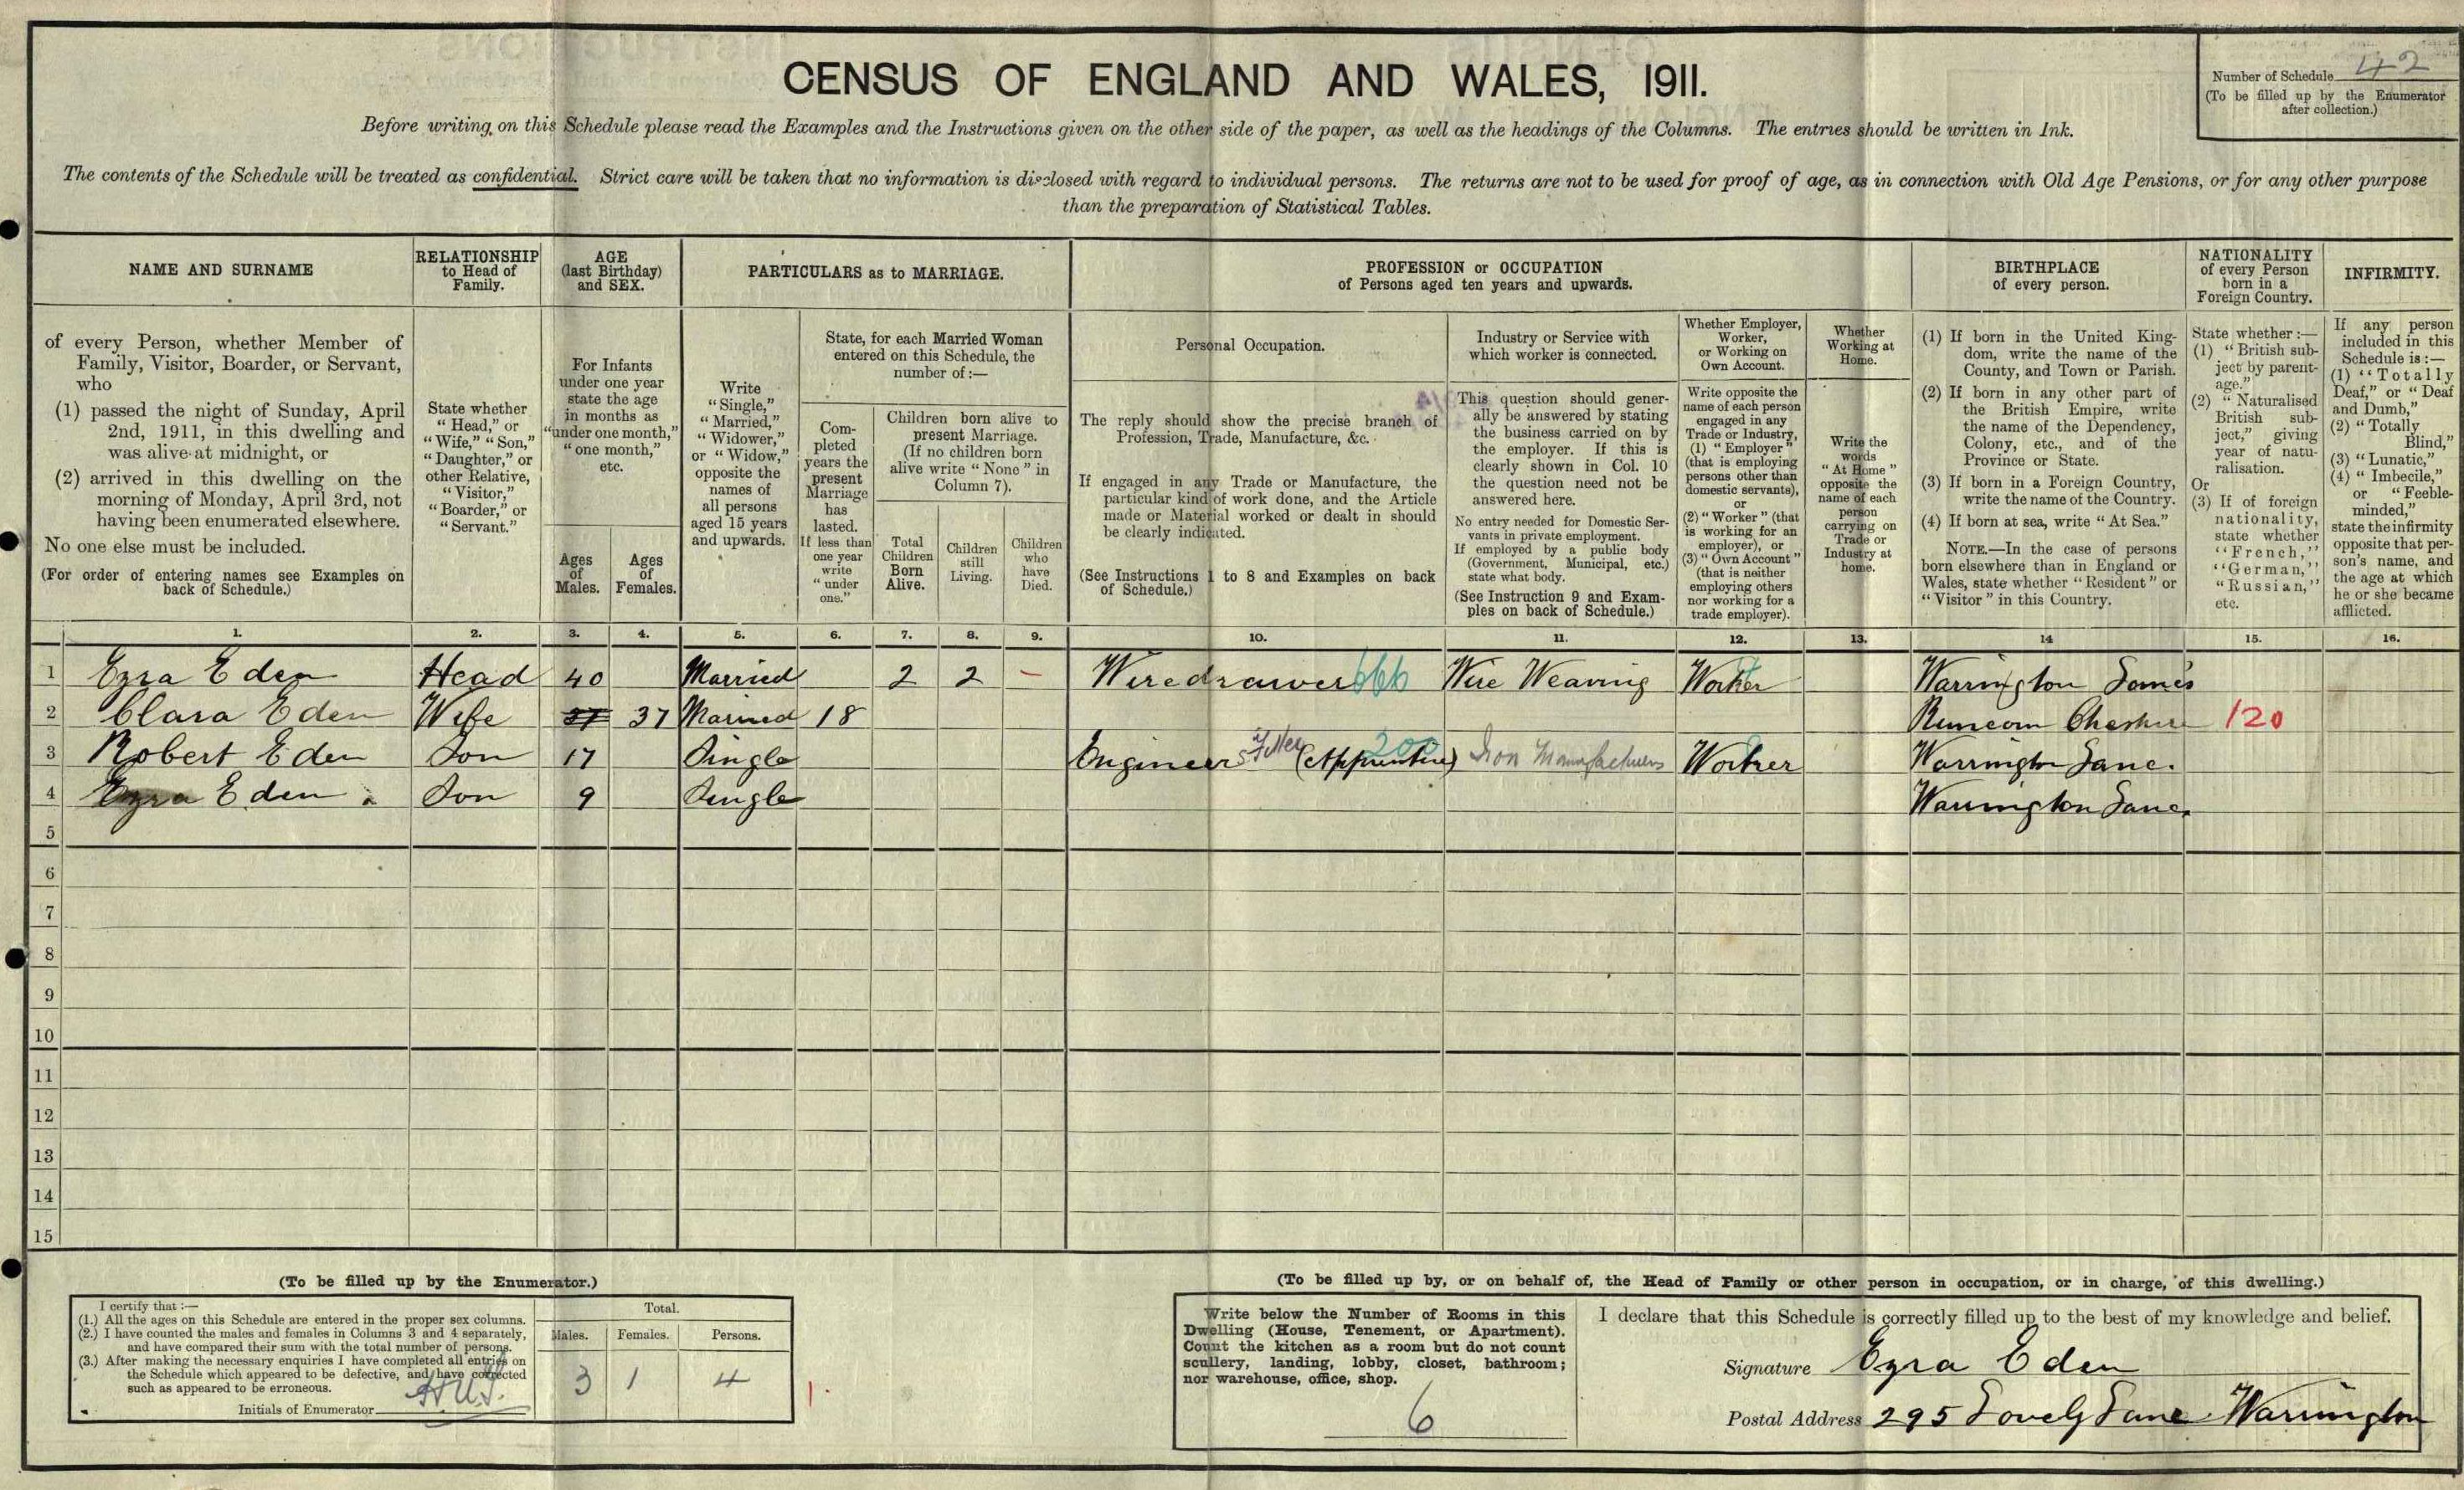 CENSUS OF ENGLAND AND WALES, 1911.
Number of Schedule 42
(To be filled up by the Enumerator
after collection.)
Before writing on this Schedule please read the Examples and the Instructions given on the other side of the paper, as well as the headings of the Columns. The entries should be written in Ink.
The contents of the Schedule will be treated as confidential. Strict care will be taken that no information is disclosed with regard to individual persons. The returns are not to be used for proof of age, as in connection with Old Age Pensions, or for any other purpose
than the preparation of Statistical Tables.
NAME AND SURNAME
of every Person, whether Member of
Family, Visitor, Boarder, or Servant,
who
(1) passed the night of Sunday, April
2nd, 1911, in this dwelling and
was alive at midnight, or
(2) arrived in this dwelling on the
morning of Monday, April 3rd, not
having been enumerated elsewhere.
No one else must be included.
(For order of entering names see Examples on
back of Schedule.)
RELATIONSHIP
to Head of
Family.
State whether
"Head," or
"Wife," "Son,"
"Daughter," or
other Relative,
"Visitor,"
"Boarder," or
"Servant."
AGE
(last Birthday)
and SEX.
For Infants
under one year
state the age
in months as
"under one month,"
"one month,"
etc.
Ages
of
Males.
Ages
of
Females.
PARTICULARS as to MARRIAGE.
Write
"Single,"
"Married,"
"Widower,"
or "Widow,"
opposite the
names of
all persons
aged 15 years
and upwards.
State, for each Married Woman
entered on this Schedule, the
number of :—
Com-
pleted
years the
present
Marriage
has
lasted.
If less than
one year
write
"under
one."
Children born alive to
present Marriage.
(If no children born
alive write "None" in
Column 7).
Total
Children
Born
Alive.
Children
still
Living.
Children
who
have
Died.
PROFESSION or OCCUPATION
of Persons aged ten years and upwards.
Personal Occupation.
The reply should show the precise branch of
Profession, Trade, Manufacture, &c.
If engaged in any Trade or Manufacture, the
particular kind of work done, and the Article
made or Material worked or dealt in should
be clearly indicated.
(See Instructions 1 to 8 and Examples on back
of Schedule.)
Industry or Service with
which worker is connected.
This question should gener-
ally be answered by stating
the business carried on by
the employer. If this is
clearly shown in Col. 10
the question need not be
answered here.
No entry needed for Domestic Ser-
vants in private employment.
If employed by a public body
(Government, Municipal, etc.)
state what body.
(See Instruction 9 and Exam-
ples on back of Schedule.)
Whether Employer,
Worker,
or Working on
Own Account.
Write opposite the
name of each person
engaged in any
Trade or Industry,
(1) "Employer"
(that is employing
persons other than
domestic servants),
or
(2) "Worker" (that
is working for an
employer), or
(3) "Own Account"
(that is neither
employing others
nor working for a
trade employer).
Whether
Working at
Home.
Write the
words
"At Home"
opposite the
name of each
person
carrying on
Trade or
Industry at
home.
BIRTHPLACE
of every person.
(1) If born in the United King-
dom, write the name of the
County, and Town or Parish.
(2) If born in any other part of
the British Empire, write
the name of the Dependency,
Colony, etc., and of the
Province or State.
(3) If born in a Foreign Country,
write the name of the Country.
(4) If born at sea, write "At Sea."
NOTE.—In the case of persons
born elsewhere than in England or
Wales, state whether "Resident" or
"Visitor" in this Country.
NATIONALITY
of every Person
born in a
Foreign Country.
State whether :—
(1) "British sub-
ject by parent-
age."
(2) "Naturalised
British sub-
ject," giving
year of natu-
ralisation.
Or
(3) If of foreign
nationality,
state whether
"French,"
"German,"
"Russian,"
etc.
INFIRMITY.
If any person
included in this
Schedule is :—
(1) "Totally
Deaf," or "Deaf
and Dumb,"
(2) "Totally
Blind,"
(3) "Lunatic,"
(4) "Imbecile,"
or "Feeble-
minded,"
state the infirmity
opposite that per-
son's name, and
the age at which
he or she became
afflicted.
1. 2. 3. 4. 5. 6. 7. 8. 9. 10. 11. 12. 13. 14 15. 16.
1 Ezra Eden Head 40 Married 2 2 – Wiredrawer 666 Wire Weaving Worker Warrington Lancs
2 Clara Eden Wife 37 37 Married 18 Runcorn Cheshire 120
3 Robert Eden Son 17 Single Engineers Fitter (Apprentice) 200 Iron Manufacturers Worker Warrington Lanc.
4 Ezra Eden Son 9 Single Warrington Lanc.
5
6
7
8
9
10
11
12
13
14
15
(To be filled up by the Enumerator.)
I certify that :—
(1.) All the ages on this Schedule are entered in the proper sex columns.
(2.) I have counted the males and females in Columns 3 and 4 separately,
and have compared their sum with the total number of persons.
(3.) After making the necessary enquiries I have completed all entries on
the Schedule which appeared to be defective, and have corrected
such as appeared to be erroneous.
Initials of Enumerator
Total.
Males. Females. Persons.
3 1 4
1.
(To be filled up by, or on behalf of, the Head of Family or other person in occupation, or in charge, of this dwelling.)
Write below the Number of Rooms in this
Dwelling (House, Tenement, or Apartment).
Count the kitchen as a room but do not count
scullery, landing, lobby, closet, bathroom;
nor warehouse, office, shop.
6
I declare that this Schedule is correctly filled up to the best of my knowledge and belief.
Signature Ezra Eden
Postal Address 295 Lovely Lane Warrington